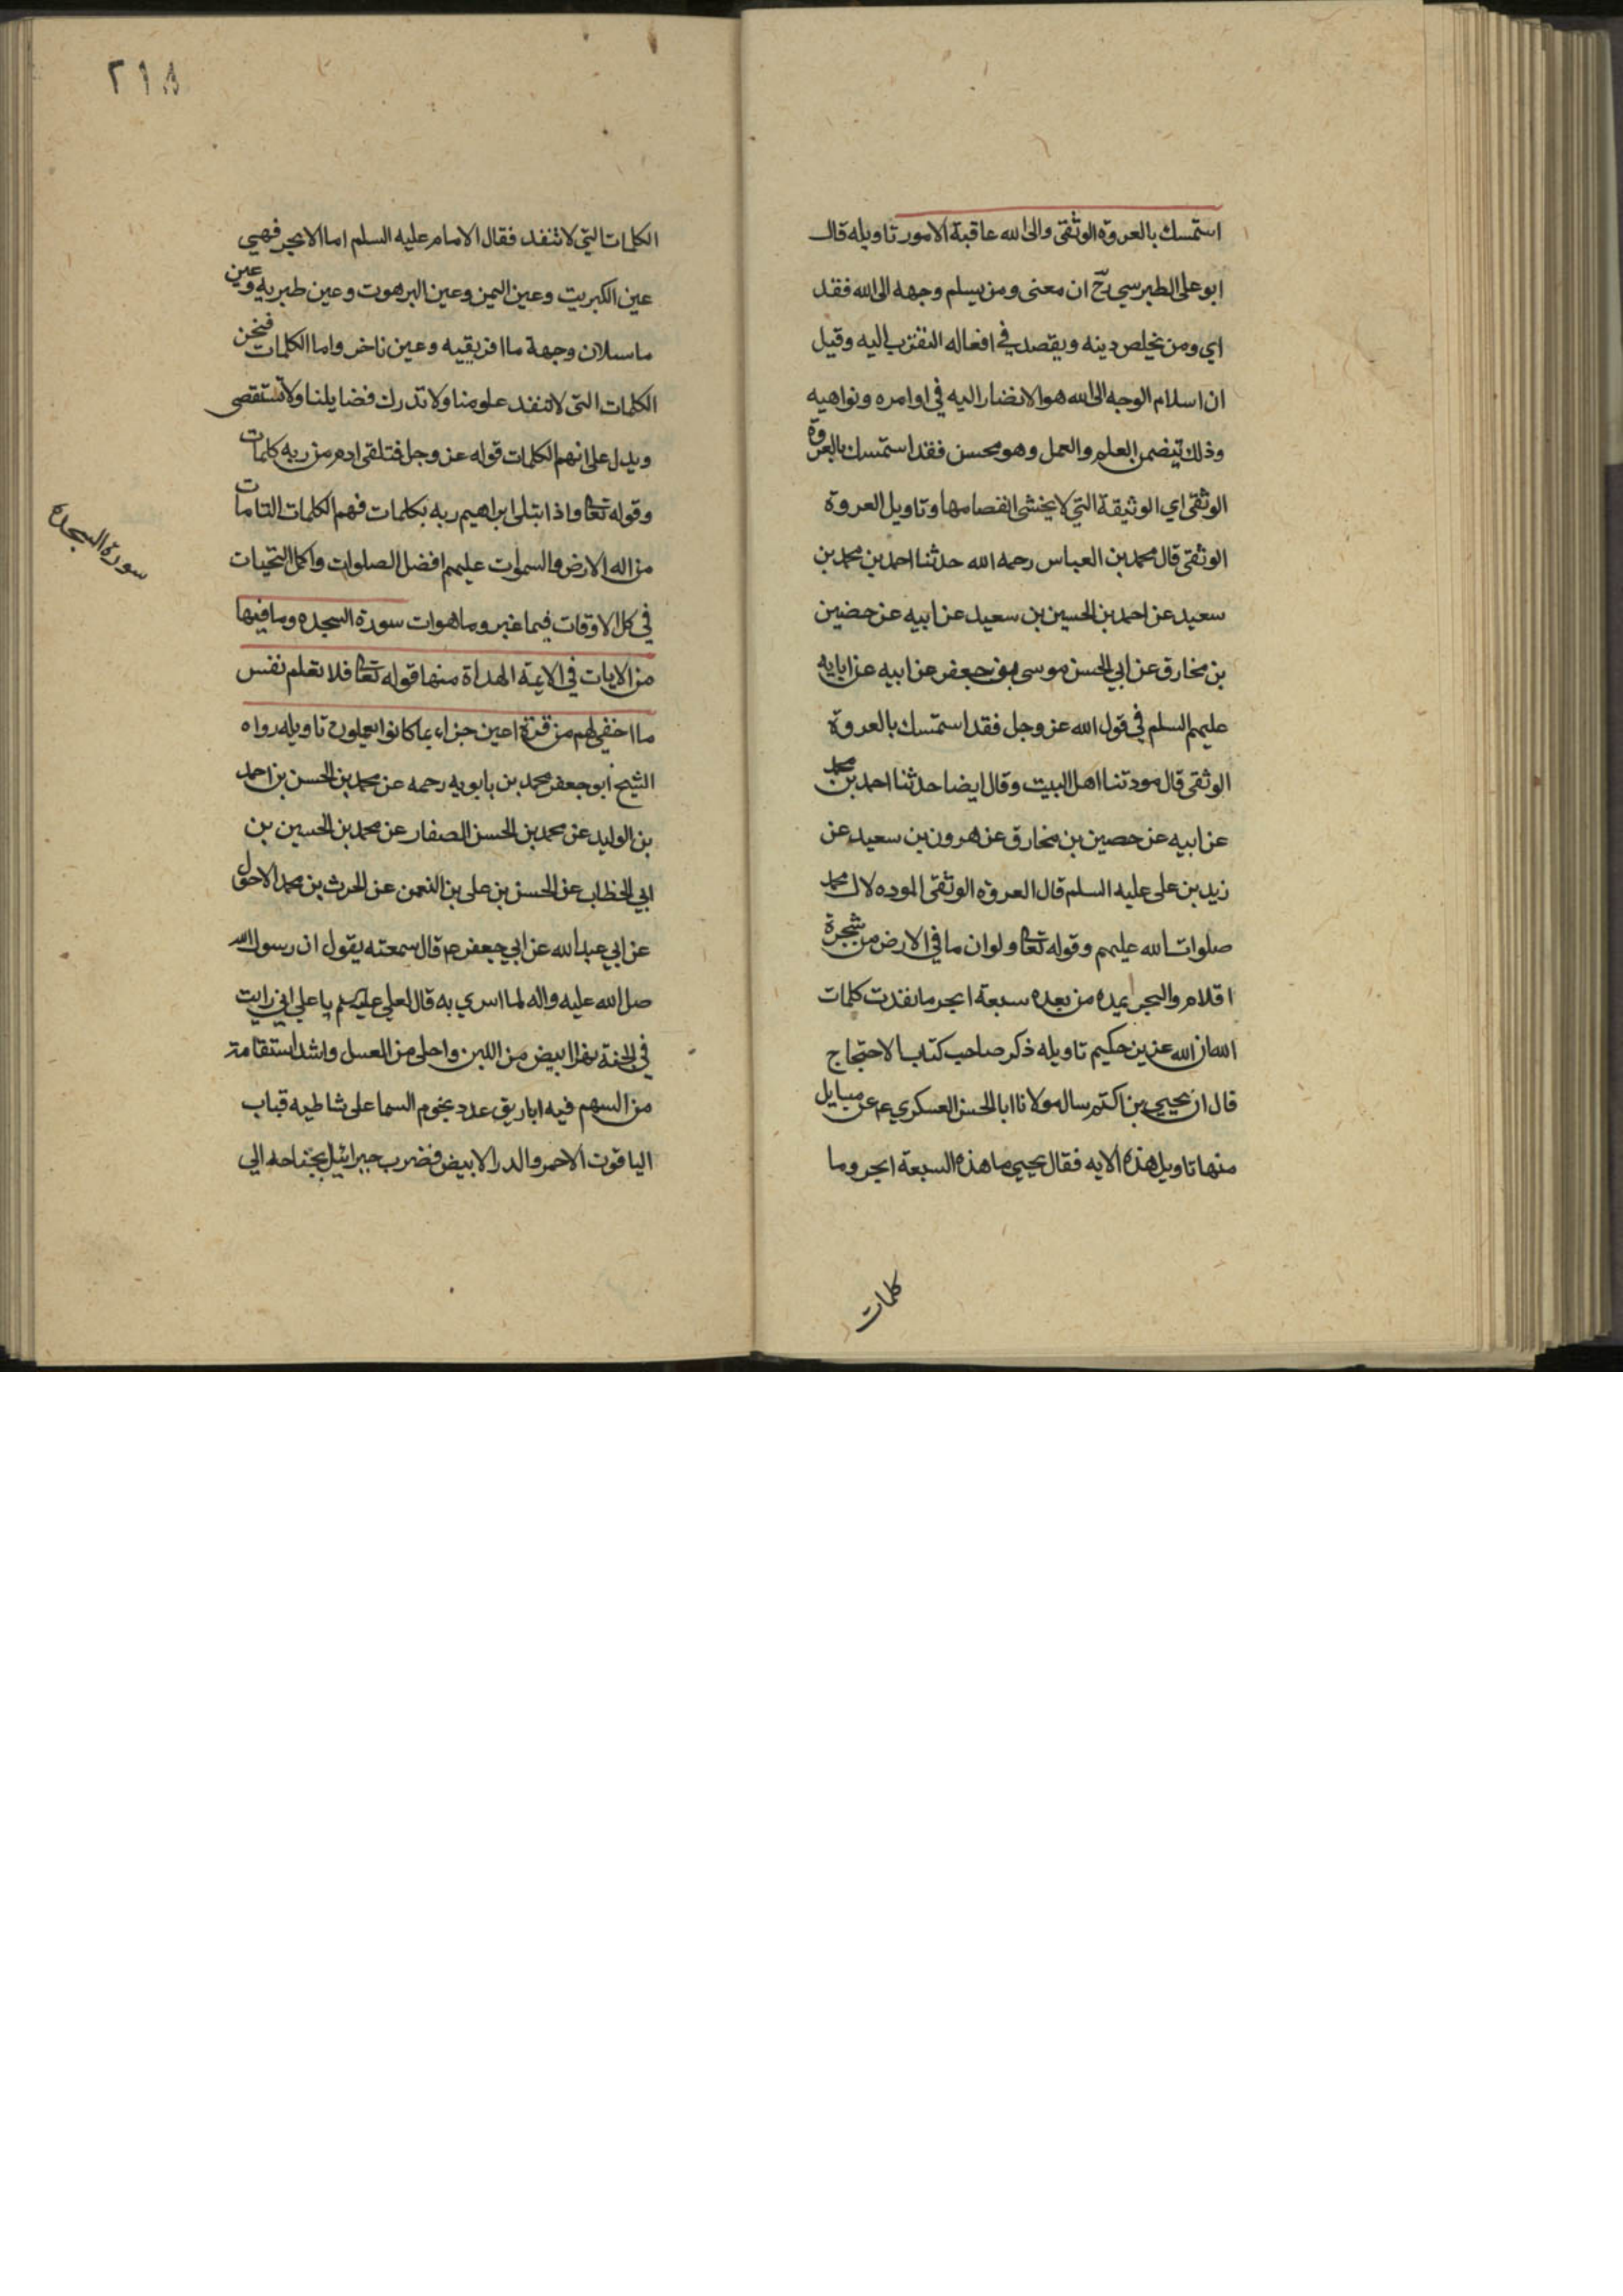 استمسك بالعروة الوثقى والى الله عاقبة الامور تاويله قال
ابو على الطبرسي رح ان معنى ومن يسلم وجهه الى الله فقد
اي ومن يخلص دينه ويقصد في افعاله التقرب اليه وقيل
ان اسلام الوجه الى الله هو الانضار اليه في اوامره ونواهيه
وذلك يتضمن العلم والعمل وهو محسن فقد استمسك بالعروة
الوثقى اي الوثيقة التي لا يخشى انفصامها وتاويل العروة
الوثقى قال محمد بن العباس رحمه الله حدثنا احمد بن محمد بن
سعيد عن احمد بن الحسين بن سعيد عن ابيه عن حضين
بن مخارق عن ابي الحسن موسى بن جعفر عن ابيه عن ابايه
عليهم السلم في قول الله عز وجل فقد استمسك بالعروة
الوثقى قال مودتنا اهل البيت وقال ايضا حدثنا احمد بن محمد
عن ابيه عن حصين بن مخارق عن هرون بن سعيد عن
زيد بن على عليه السلم قال العروة الوثقى الموده لال محمد
صلوات الله عليهم وقوله تعا ولو ان ما في الارض من شجرة
اقلام والبحر يمده من بعده سبعة ابحر ما نفدت كلمات
الله ان الله عزيز حكيم تاويله ذكر صاحب كتاب الاحتجاج
قال ان يحيى بن اكثم سال مولانا ابا الحسن العسكري ع عن مسايل
منها تاويل هذه الايه فقال يحيى ما هذه السبعة ابحر وما
كلمات
٢١٨
الكلمات التي لا تنفد فقال الامام عليه السلم اما الابحر فهي
عين الكبريت وعين اليمن وعين البرهوت وعين طبريه وعين
ماسبلان وجهة ما افريقيه وعين ناخر واما الكلمات فنحن
الكلمات التي لا تنفد علومنا ولا تدرك فضايلنا ولا تستقصى
ويدل على انهم الكلمات قوله عز وجل فتلقى ادم من ربه كلمات
وقوله تعا واذ ابتلى ابراهيم ربه بكلمات فهم الكلمات التامات
من اله الارض والسموات عليهم افضل الصلوات واكمل التحيات
في كل الاوقات فيما غبر وما هو ات سورة السجده وما فيها
من الايات في الايمة الهداة منها قوله تعا فلا تعلم نفس
ما اخفي لهم من قرة اعين جزاء بما كانوا يعملون تاويله رواه
الشيخ ابو جعفر محمد بن بابويه رحمه عن محمد بن الحسن بن احمد
بن الوليد عن محمد بن الحسن الصفار عن محمد بن الحسين بن
ابي الخطاب عن الحسن بن على بن النعمن عن الحرث بن محمد الاحول
عن ابي عبد الله عن ابي جعفر ع قال سمعته يقول ان رسول الله
صل الله عليه واله لما اسري به قال لعلي عليه السلم يا علي اني رايت
في الجنة نهرا ابيض من اللبن واحلى من العسل واشد استقامة
من السهم فيه اباريق عدد نجوم السما على شاطيه قباب
الياقوت الاحمر والدر الابيض فضرب جبرائيل بجناحه الي
سورة السجده